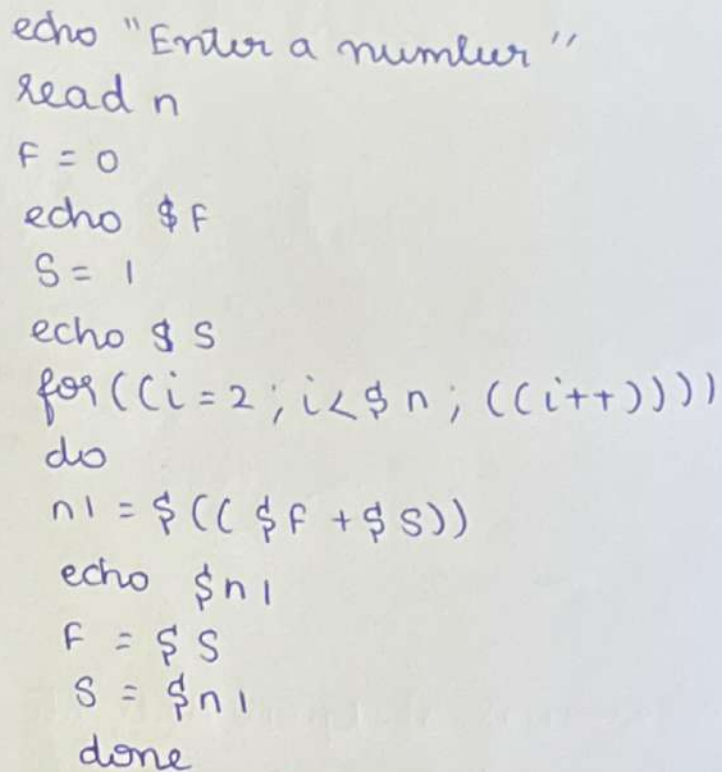 echo "Enter a number"
read n
F = 0
echo $F
S = 1
echo $ S
for((i=2; i<$n; ((i++))))
do
n1 = $(( $F + $S))
echo $n1
F = $S
S = $n1
done